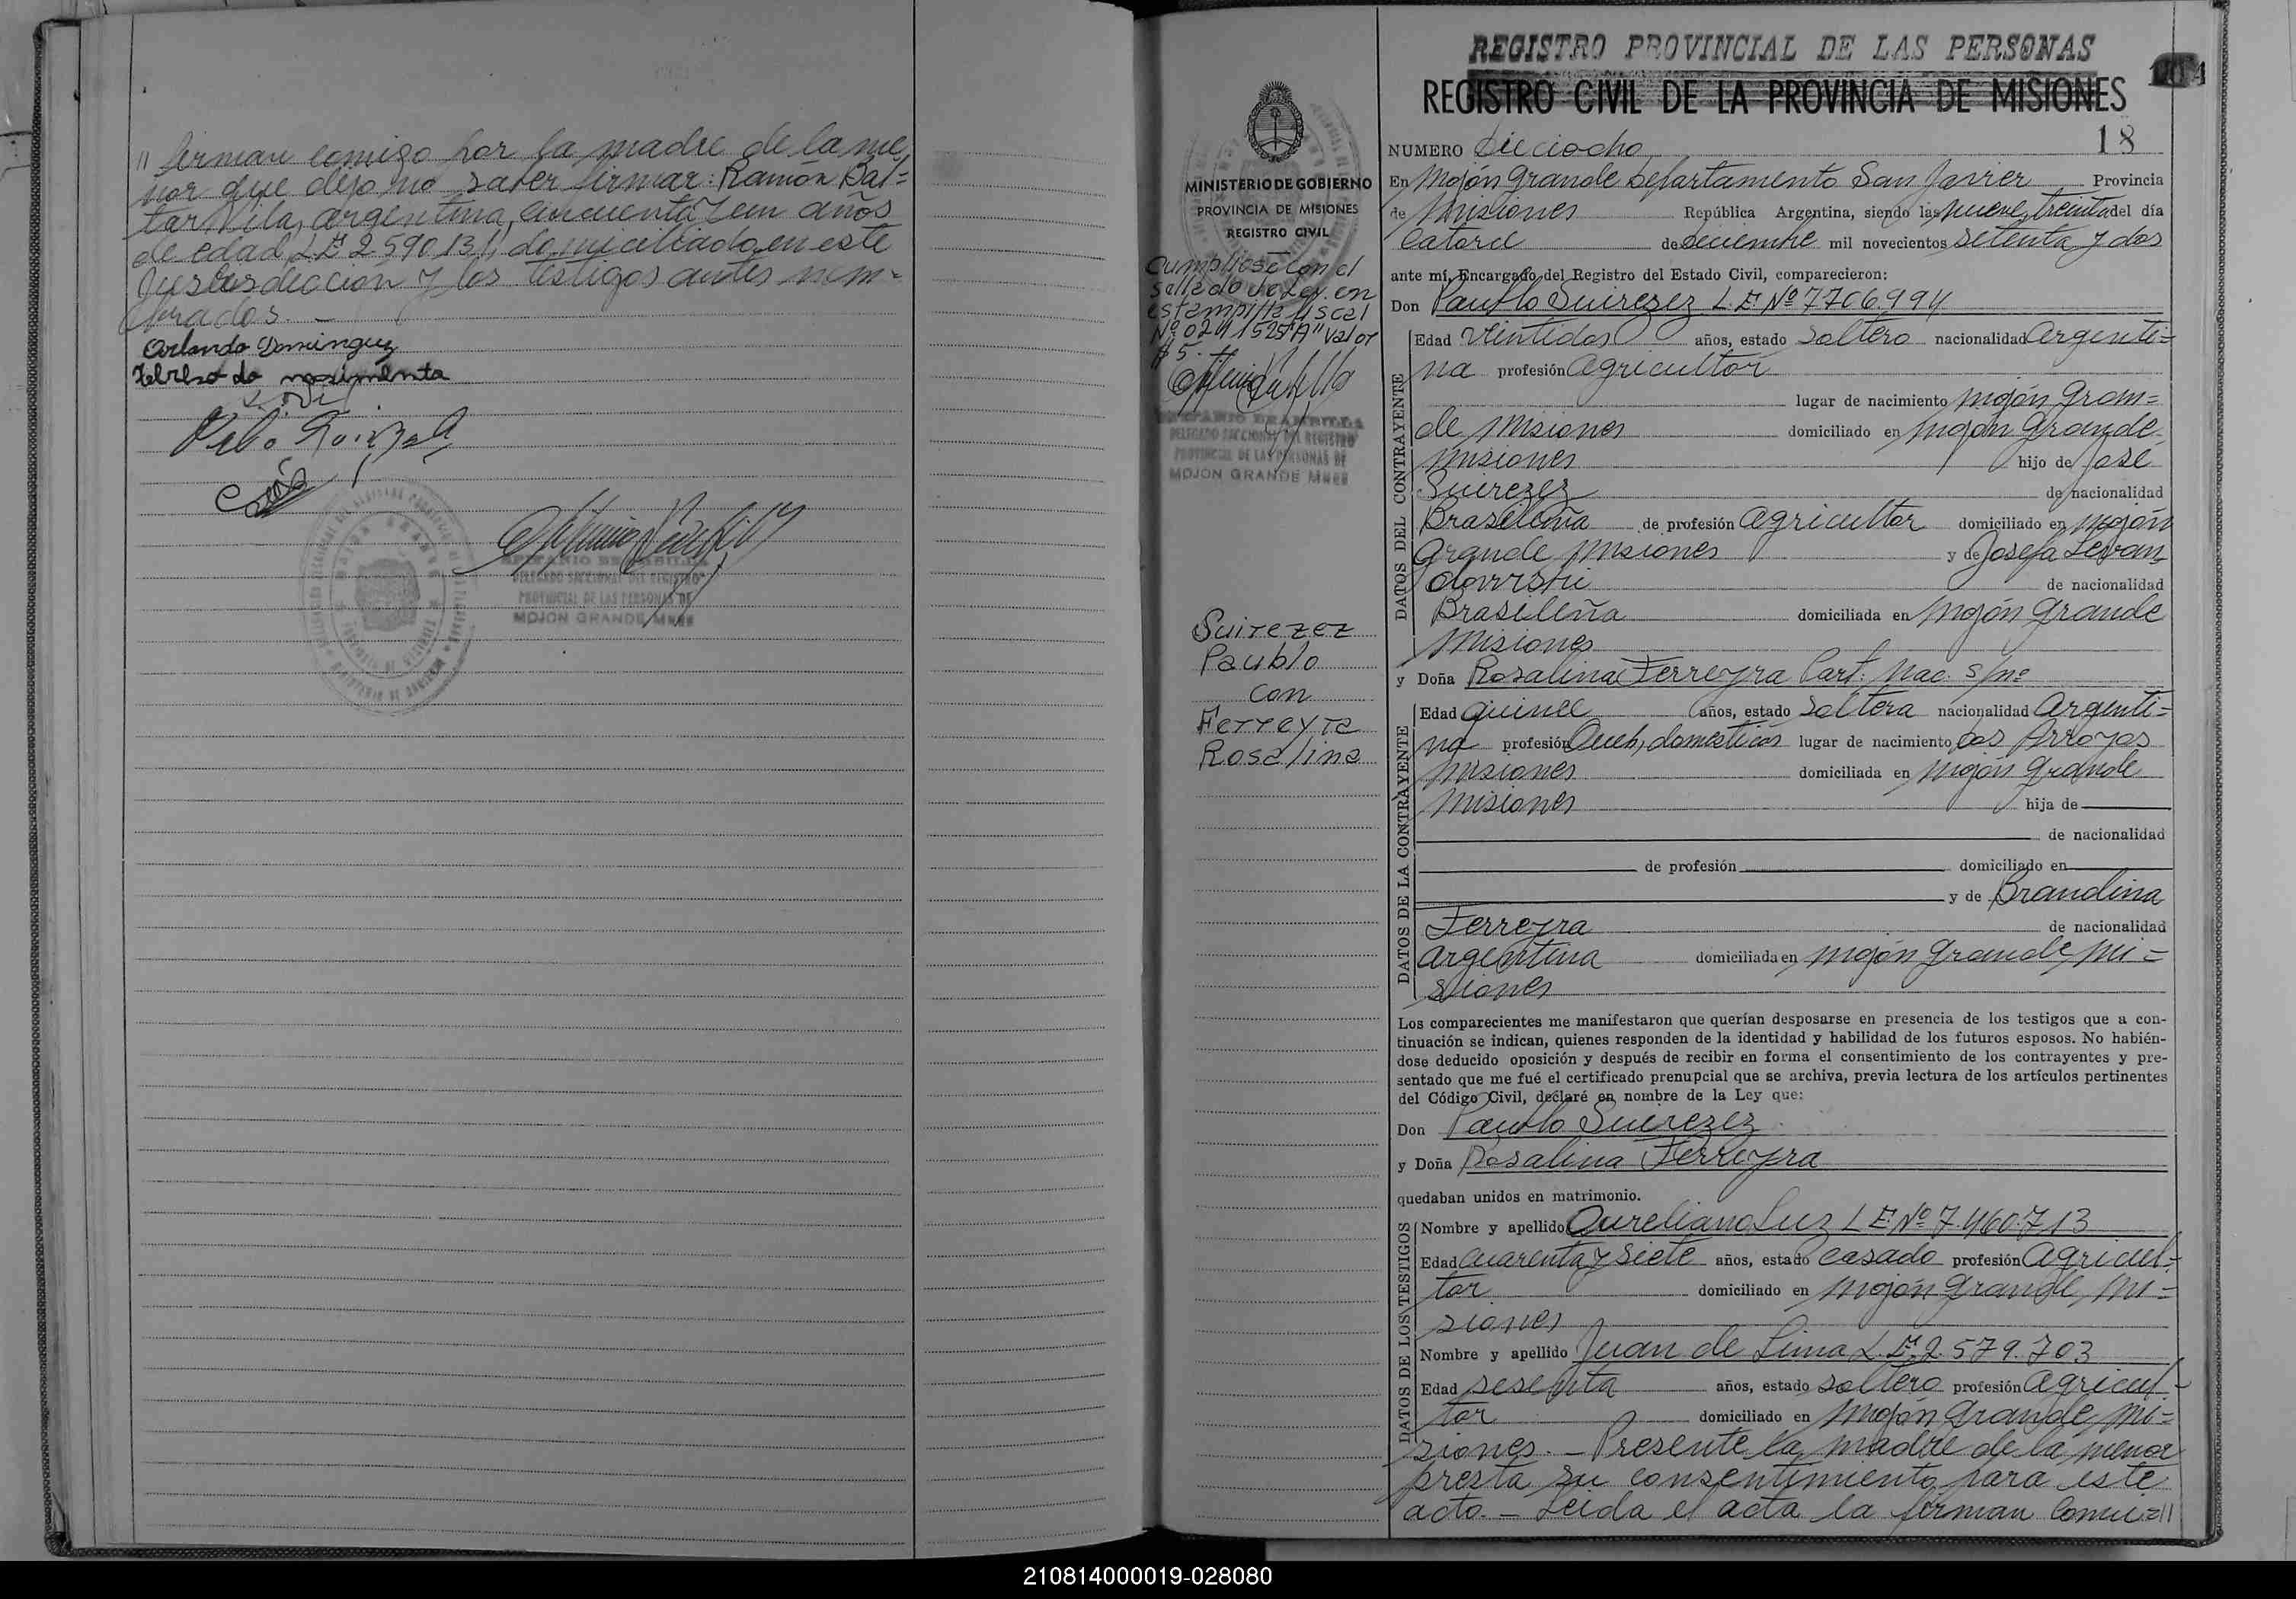 // firman comigo por la madre de la me
nor que dejo no saber firmar: Ramón Bal=
tar Vila, argentina, cincuenta y un años
de edad L.E. 2.590.131, domiciliado en este
Jurisdiccion y los testigos antes nom=
brados. —
Orlando Dominguez
DELEGADO SECCIONAL DEL REGISTRO
PROVINCIAL DE LAS PERSONAS DE
MOJON GRANDE Mnes
MINISTERIO DE GOBIERNO
PROVINCIA DE MISIONES
REGISTRO CIVIL
Cumpliose con el
sellado de Ley en
estampilla fiscal
Nº 02411525 "A" valor
$ 5.-
DELEGADO SECCIONAL DEL REGISTRO
PROVINCIAL DE LAS PERSONAS DE
MOJON GRANDE Mnes
Suirezez
Paublo
con
Ferreyra
Rosalina
REGISTRO PROVINCIAL DE LAS PERSONAS
REGISTRO CIVIL DE LA PROVINCIA DE MISIONES
18
NUMERO Dieciocho
En Mojón Grande Departamento San Javier Provincia
de Misiones República Argentina, siendo las nueve, treinta del día
Catorce de Diciembre mil novecientos setenta y dos
ante mí, Encargado del Registro del Estado Civil, comparecieron:
Don Paublo Suirezez L.E. Nº 7706994
DATOS DEL CONTRAYENTE
Edad Veintidos años, estado Soltero nacionalidad Argenti=
na profesión Agricultor
lugar de nacimiento Mojón Gran=
de Misiones domiciliado en Mojón Grande
Misiones hijo de José
Suirezez de nacionalidad
Brasileña de profesión Agricultor domiciliado en Mojón
Grande Misiones y de Josefa Levan
dowski de nacionalidad
Brasileña domiciliada en Mojón Grande
Misiones
y Doña Rosalina Ferreyra Part. Nac. s/nº
DATOS DE LA CONTRAYENTE
Edad quince años, estado Soltera nacionalidad Argenti=
na profesión Queh, domesticos lugar de nacimiento Los Arroyos
Misiones domiciliada en Mojón Grande
Misiones hija de
de nacionalidad
de profesión domiciliado en
y de Brandina
Ferreyra de nacionalidad
Argentina domiciliada en Mojón Grande, Mi=
siones
Los comparecientes me manifestaron que querían desposarse en presencia de los testigos que a con-
tinuación se indican, quienes responden de la identidad y habilidad de los futuros esposos. No habién-
dose deducido oposición y después de recibir en forma el consentimiento de los contrayentes y pre-
sentado que me fué el certificado prenupcial que se archiva, previa lectura de los artículos pertinentes
del Código Civil, declaré en nombre de la Ley que:
Don Paublo Suirezez
y Doña Rosalina Ferreyra
quedaban unidos en matrimonio.
DATOS DE LOS TESTIGOS
Nombre y apellido Aureliano Luz L E. Nº 7.460.713
Edad Cuarenta y siete años, estado casado profesión Agricul=
tor domiciliado en Mojón Grande, Mi=
siones
Nombre y apellido Juan de Lima L.E. 2.579.703
Edad sesenta años, estado soltero profesión Agricul-
tor domiciliado en Mojón Grande, Mi=
siones. — Presente la madre de la menor
presta su consentimiento para este
acto. — Leida el acta la firman comi=//
210814000019-028080